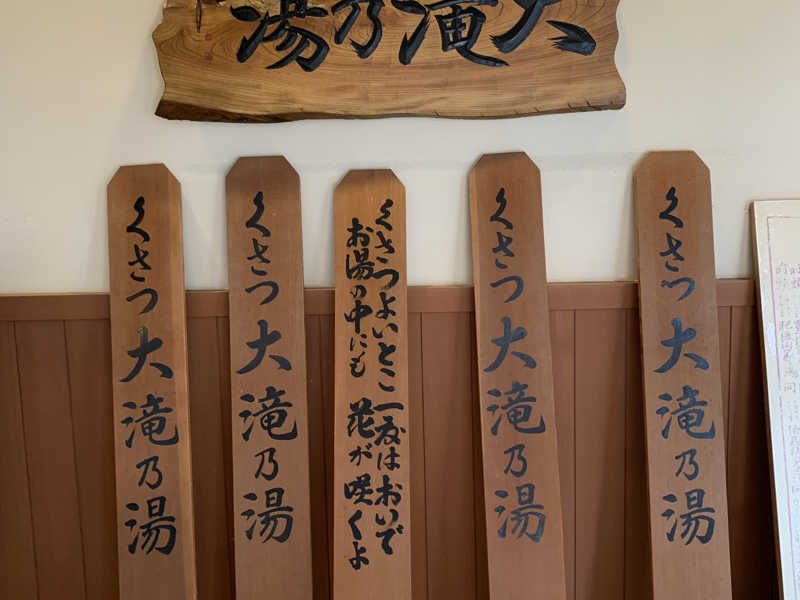 大滝乃湯
くさつ 大滝乃湯
くさつ 大滝乃湯
くさつよいとこ 一度はおいで
お湯の中にも 花が咲くよ
くさつ 大滝乃湯
くさつ 大滝乃湯